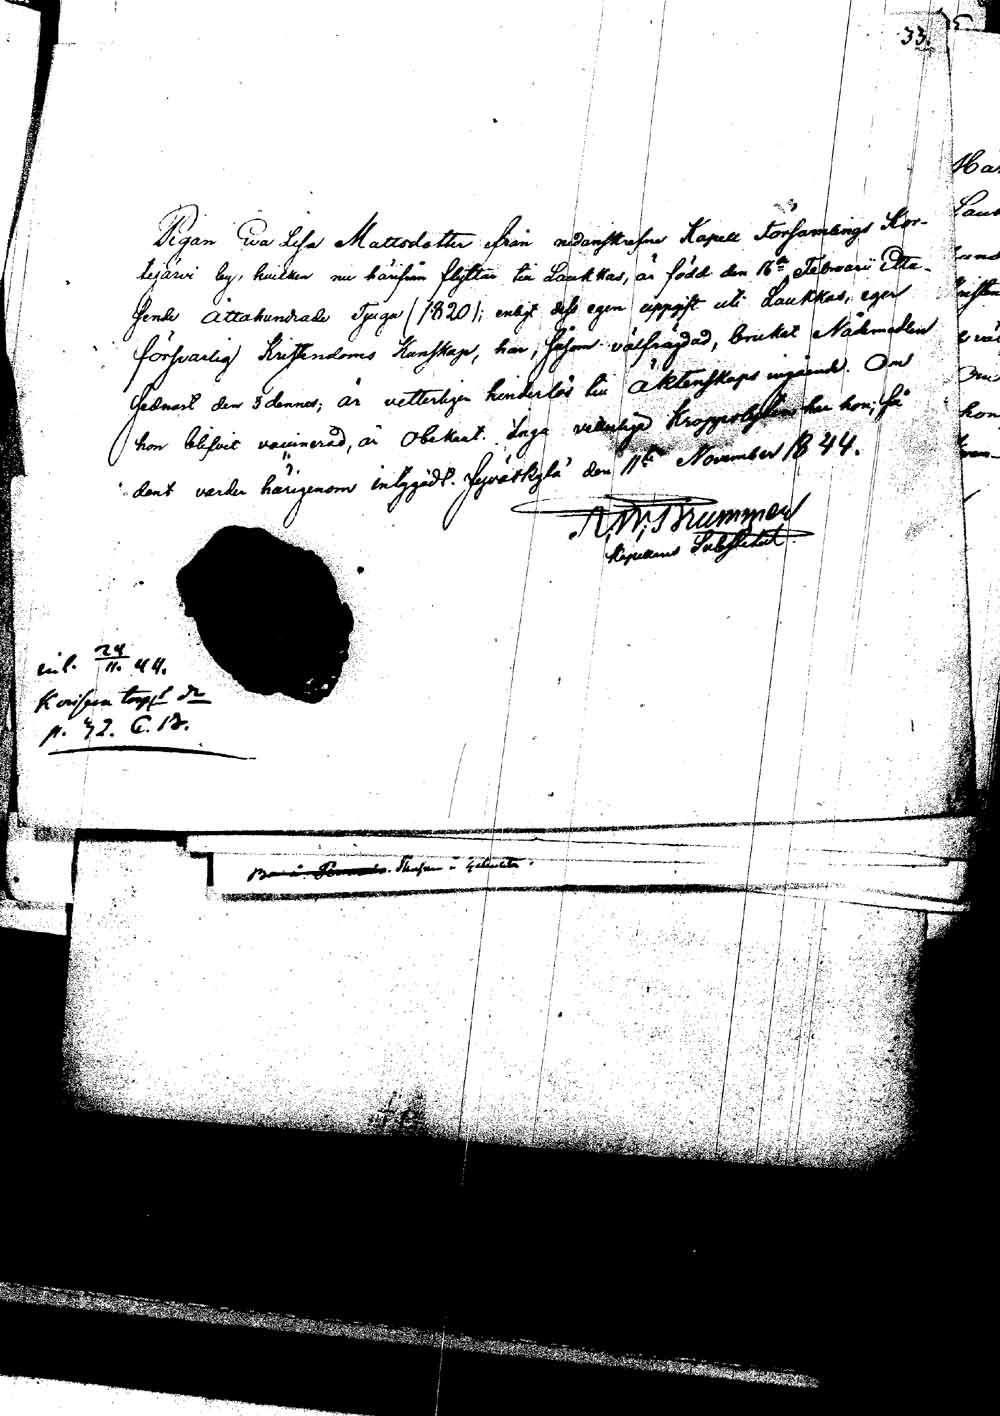 33.
Pigan Eva Lisa Mattsdotter från nedanskrefne Kapell Församlings Kor-
tejärvi by, hvilken nu härifrån flyttar till Laukkas, är född den 16de Februarii Etta-
sende Åttahundrade Tjugu (1820); enligt dess egen uppgift uti Laukkas, eger
försvarlig Kristendoms Kunskap, har, såsom välfrägdad, brukat Nådemedlen
sednast den 3 dennes; är vetterligen hinderlös till Äktenskaps ingående. Om
hon blifvit vaccinerad, är obekant. Inga vetterliga Kroppslyten har hon; så-
dant varder härigenom intygadt. Jyväskylä den 11te November 1844.
Brummer
Kapellans Substitut
inl. 24/11. 44.
torp
p. 42. C. 13.
Har
Lauk
hon